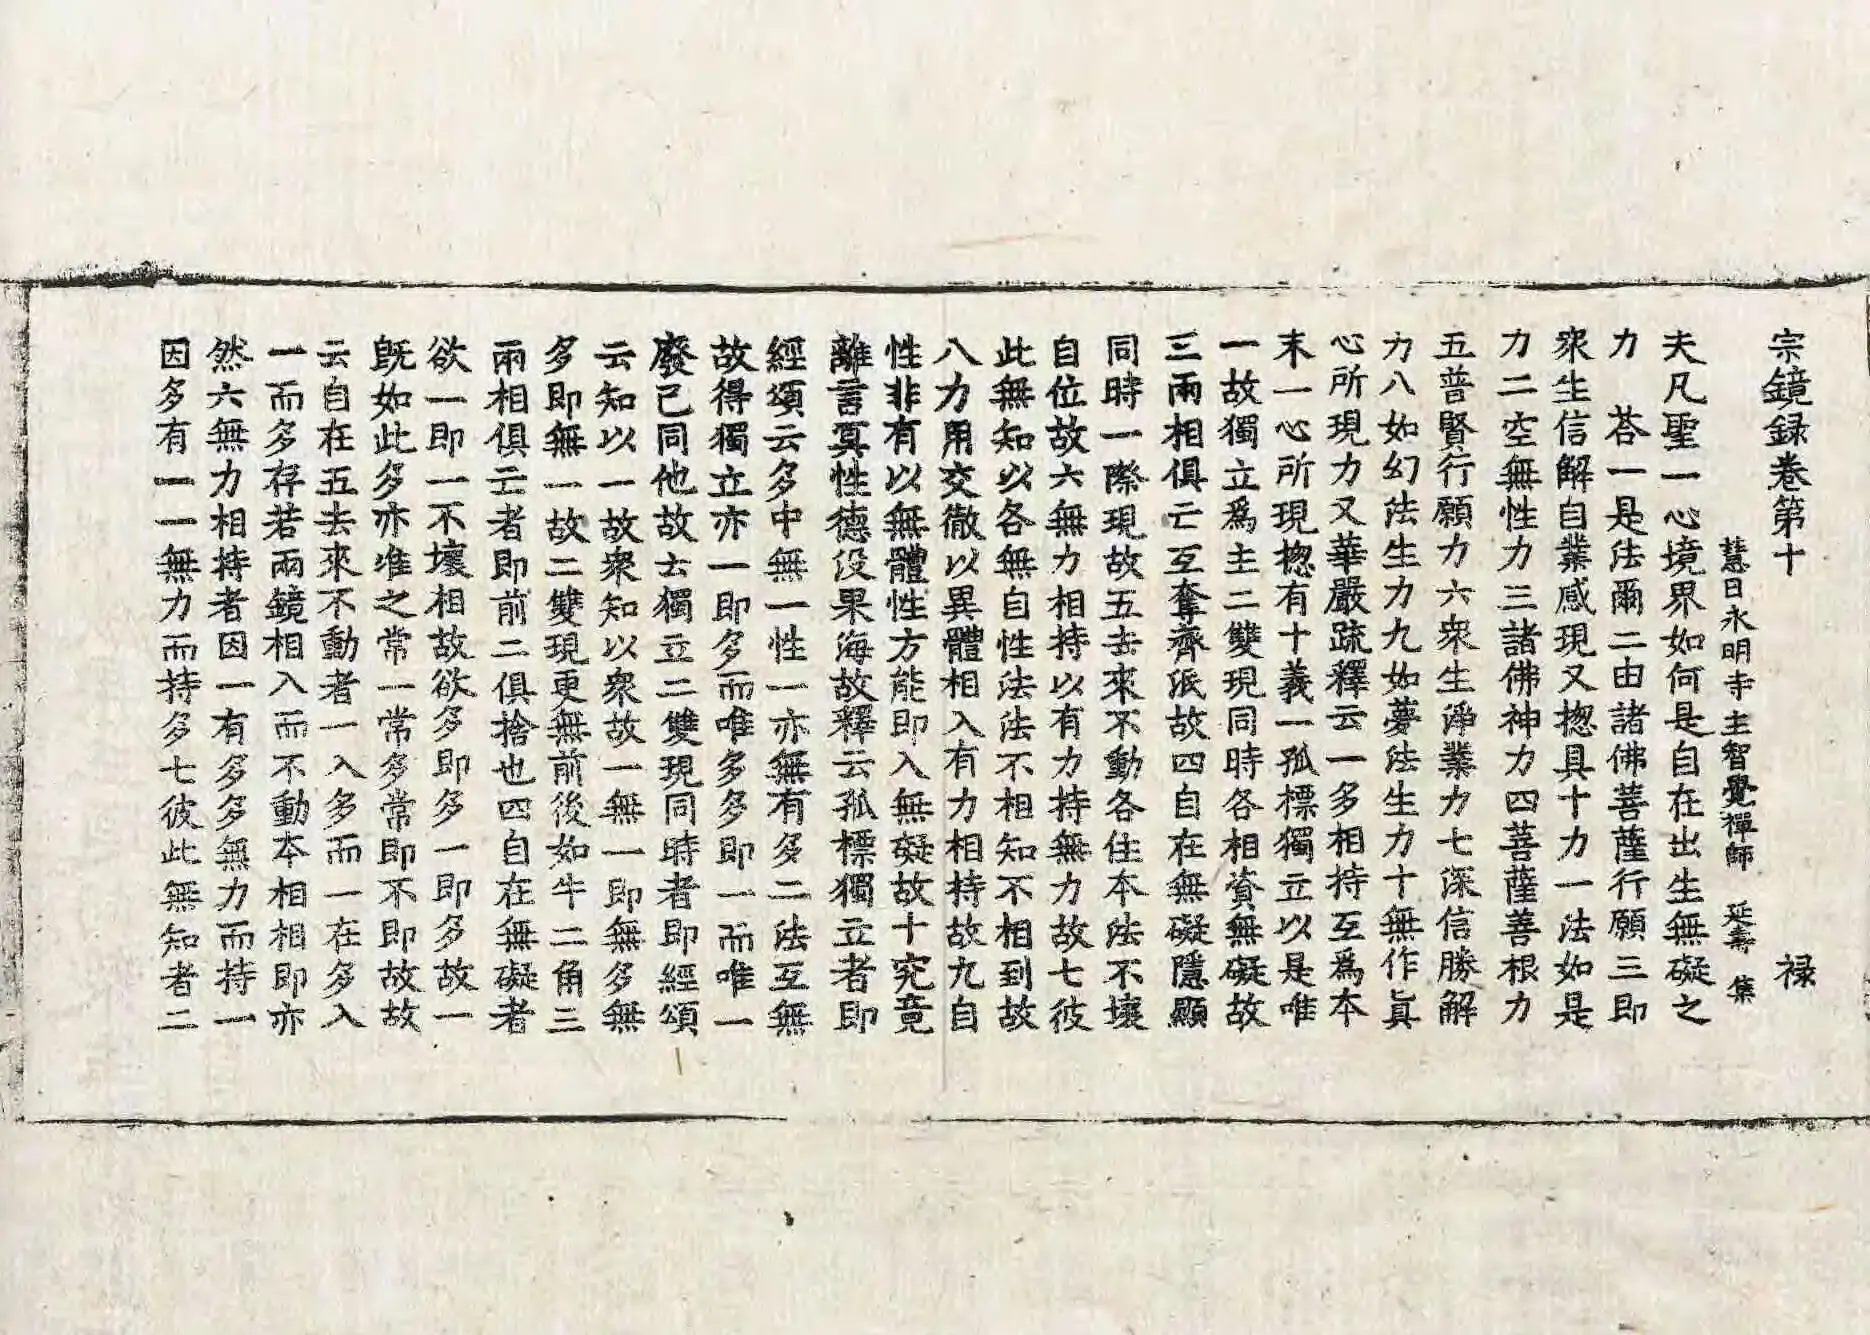 宗鏡録卷第十 禄
慧日永明寺主智覺禪師 延壽 集
夫凡聖一心境界如何是自在出生無礙之
力 荅一是法爾二由諸佛菩薩行願三即
衆生信解自業感現又揔具十力一法如是
力二空無性力三諸佛神力四菩薩善根力
五普賢行願力六衆生淨業力七深信勝解
力八如幻法生力九如夢法生力十無作眞
心所現力又華嚴疏釋云一多相持互爲本
末一心所現揔有十義一孤標獨立以是唯
一故獨立爲主二雙現同時各相資無礙故
三兩相俱亡互奪齊泯故四自在無礙隱顯
同時一際現故五去來不動各住本法不壞
自位故六無力相持以有力持無力故七彼
此無知以各無自性法法不相知不相到故
八力用交徹以異體相入有力相持故九自
性非有以無體性方能即入無礙故十究竟
離言冥性德没果海故釋云孤標獨立者即
經頌云多中無一性一亦無有多二法互無
故得獨立亦一即多而唯多多即一而唯一
廢己同他故云獨立二雙現同時者即經頌
云知以一故衆知以衆故一無一即無多無
多即無一故二雙現更無前後如牛二角三
兩相俱亡者即前二俱捨也四自在無礙者
欲一即一不壞相故欲多即多一即多故一
旣如此多亦准之常一常多常即不即故故
云自在五去來不動者一入多而一在多入
一而多存若兩鏡相入而不動本相相即亦
然六無力相持者因一有多多無力而持一
因多有一一無力而持多七彼此無知者二